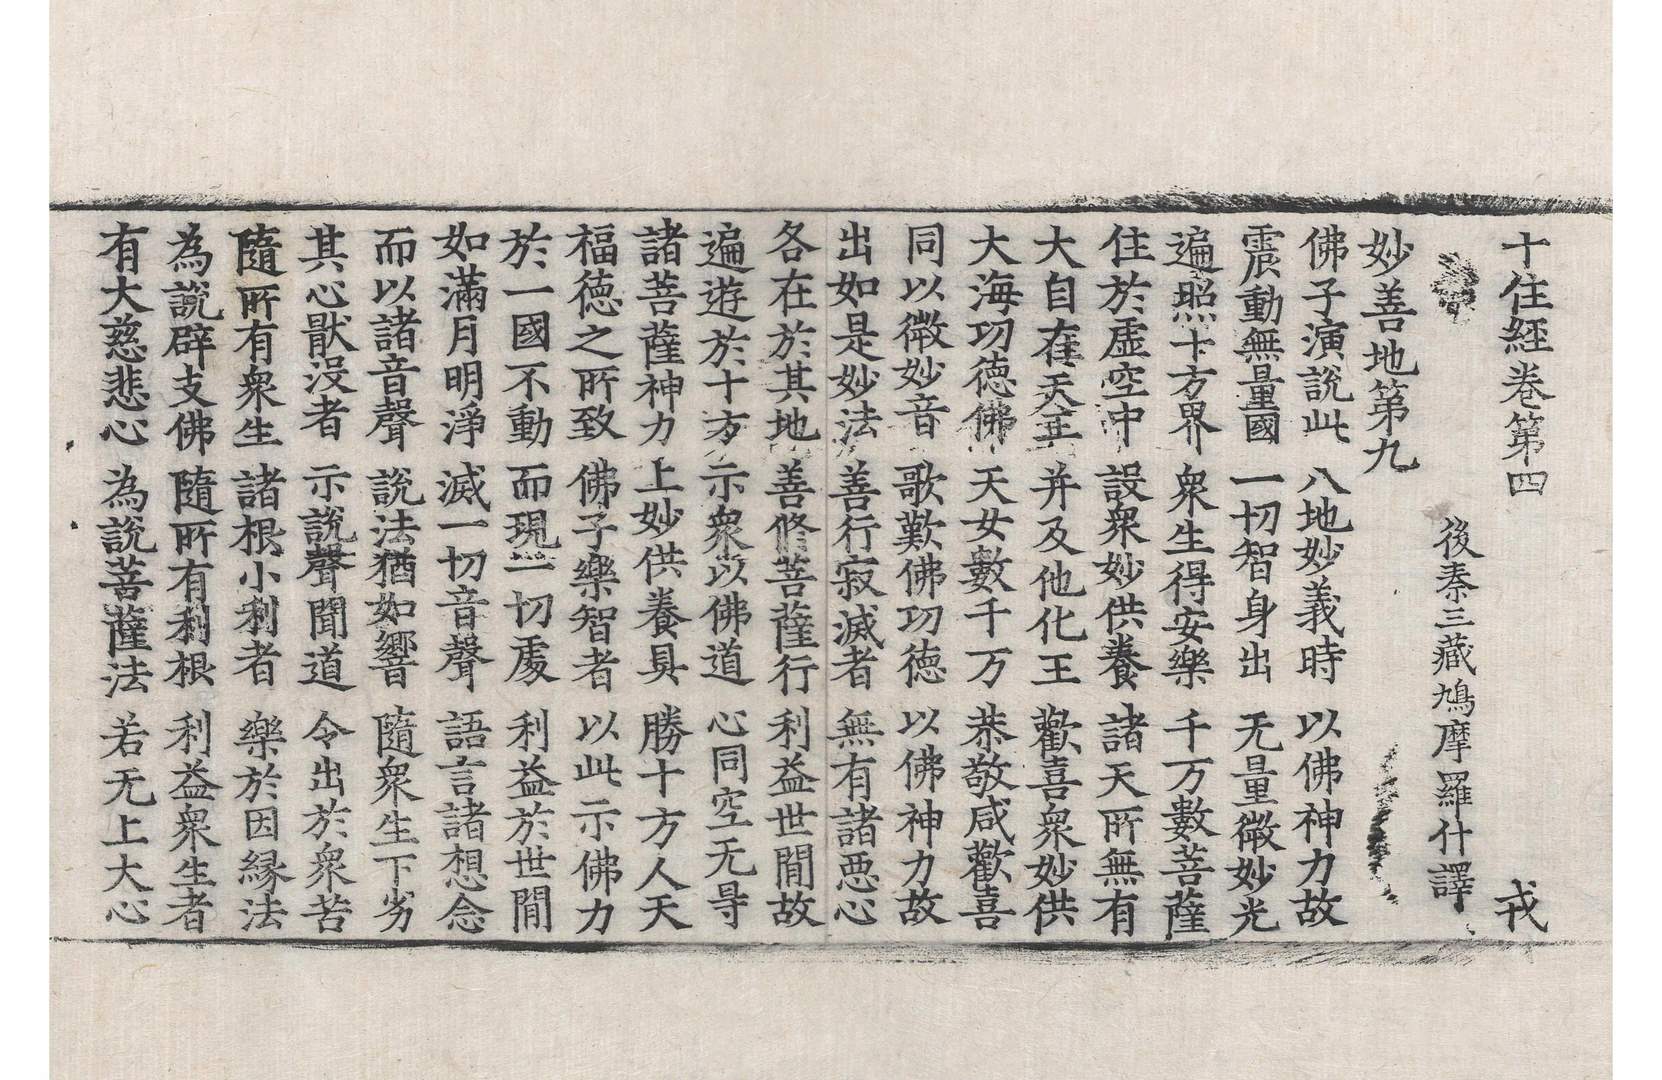 十住經卷第四 戎
後秦三藏鳩摩羅什譯
妙善地第九
佛子演說此 八地妙義時 以佛神力故
震動無量國 一切智身出 无量微妙光
遍照十方界 衆生得安樂 千万數菩薩
住於虛空中 設衆妙供養 諸天所無有
大自在天王 并及他化王 歡喜衆妙供
大海功德佛 天女數千万 恭敬咸歡喜
同以微妙音 歌歎佛功德 以佛神力故
出如是妙法 善行寂滅者 無有諸惡心
各在於其地 善修菩薩行 利益世閒故
遍遊於十方 示衆以佛道 心同空无㝵
諸菩薩神力 上妙供養具 勝十方人天
福德之所致 佛子樂智者 以此示佛力
於一國不動 而現一切處 利益於世閒
如滿月明淨 滅一切音聲 語言諸想念
而以諸音聲 說法猶如響 隨衆生下劣
其心猒沒者 示說聲聞道 令出於衆苦
隨所有衆生 諸根小利者 樂於因緣法
為說辟支佛 隨所有利根 利益衆生者
有大慈悲心 為說菩薩法 若无上大心